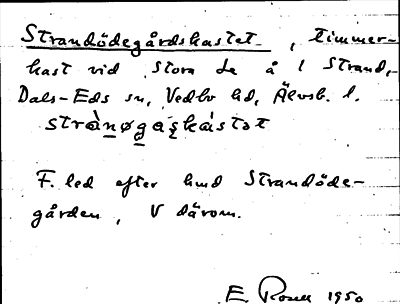 Strandödegårdskastet, timmer-
kast vid Stora Le å i Strand,
Dals-Eds sn, Vedbo hd, Älvsb. l.
strànøgaṣkástət
F. led efter hmd Strandöde-
gården, V därom.
E. Rosell 1950